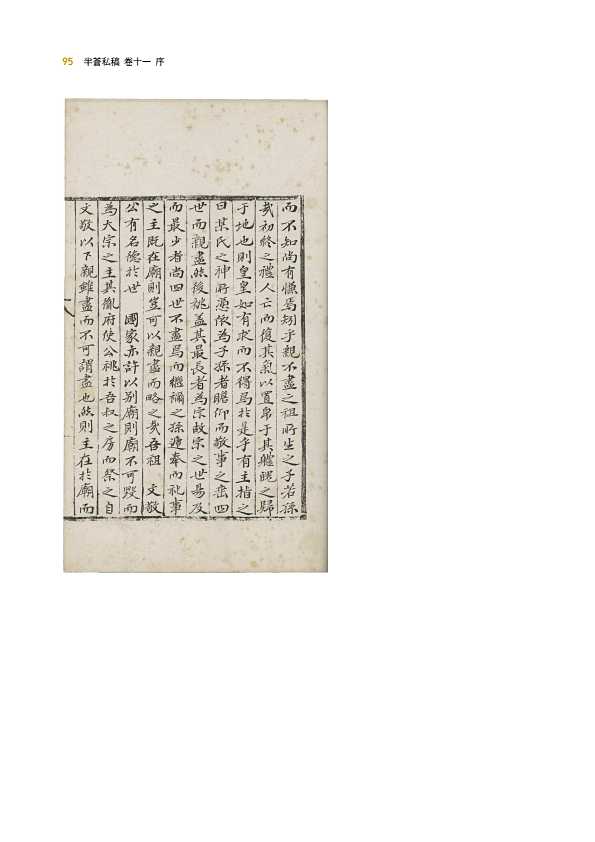 95 半蒼私稿 卷十一 序
而不知尙有慊焉矧乎親不盡之祖所生之子若孫
㢤初終之禮人亡而復其氣以置帛于其軆魄之歸
于地也則皇皇如有求而不得焉於是乎有主指之
曰某氏之神所憑依爲子孫者瞻仰而敬事之盡四
世而親盡然後祧盖其最長者爲宗故宗之世易及
而最少者尙四世不盡焉而繼禰之孫遞奉而祀事
之主旣在廟則豈可以親盡而略之㢤吾祖 文敬
公有名德於世 國家亦許以別廟則廟不可毀而
爲大宗之主其胤府使公祧於吾叔之房而祭之自
文敬以下親雖盡而不可謂盡也然則主在於廟而